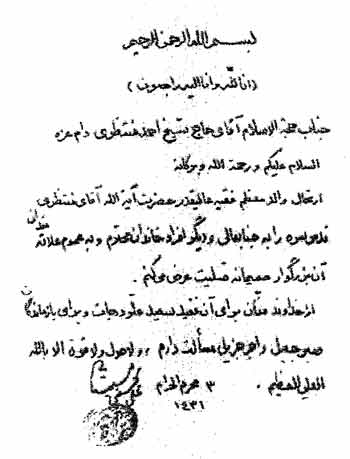 بسم الله الرحمن الرحیم
(انا لله و انا الیه راجعون)
جناب حجة الاسلام آقای حاج شیخ احمد منتظری دام عزه
السلام علیکم و رحمة الله و برکاته
ارتحال والد معظم فقیه عالیقدر حضرت آیة الله آقای منتظری
قدس سره را به جنابعالی و دیگر افراد خاندان محترم و به عموم علاقه مندان
آن بزرگوار صمیمانه تسلیت عرض میکنم .
از خداوند منان برای آن فقید سعید علو درجات و برای بازماندگان
صبر جمیل و اجر جزیل مسألت دارم ، ولا حول ولا قوة الا بالله
العلی العظیم . ۳ محرم الحرام
۱۴۳۱